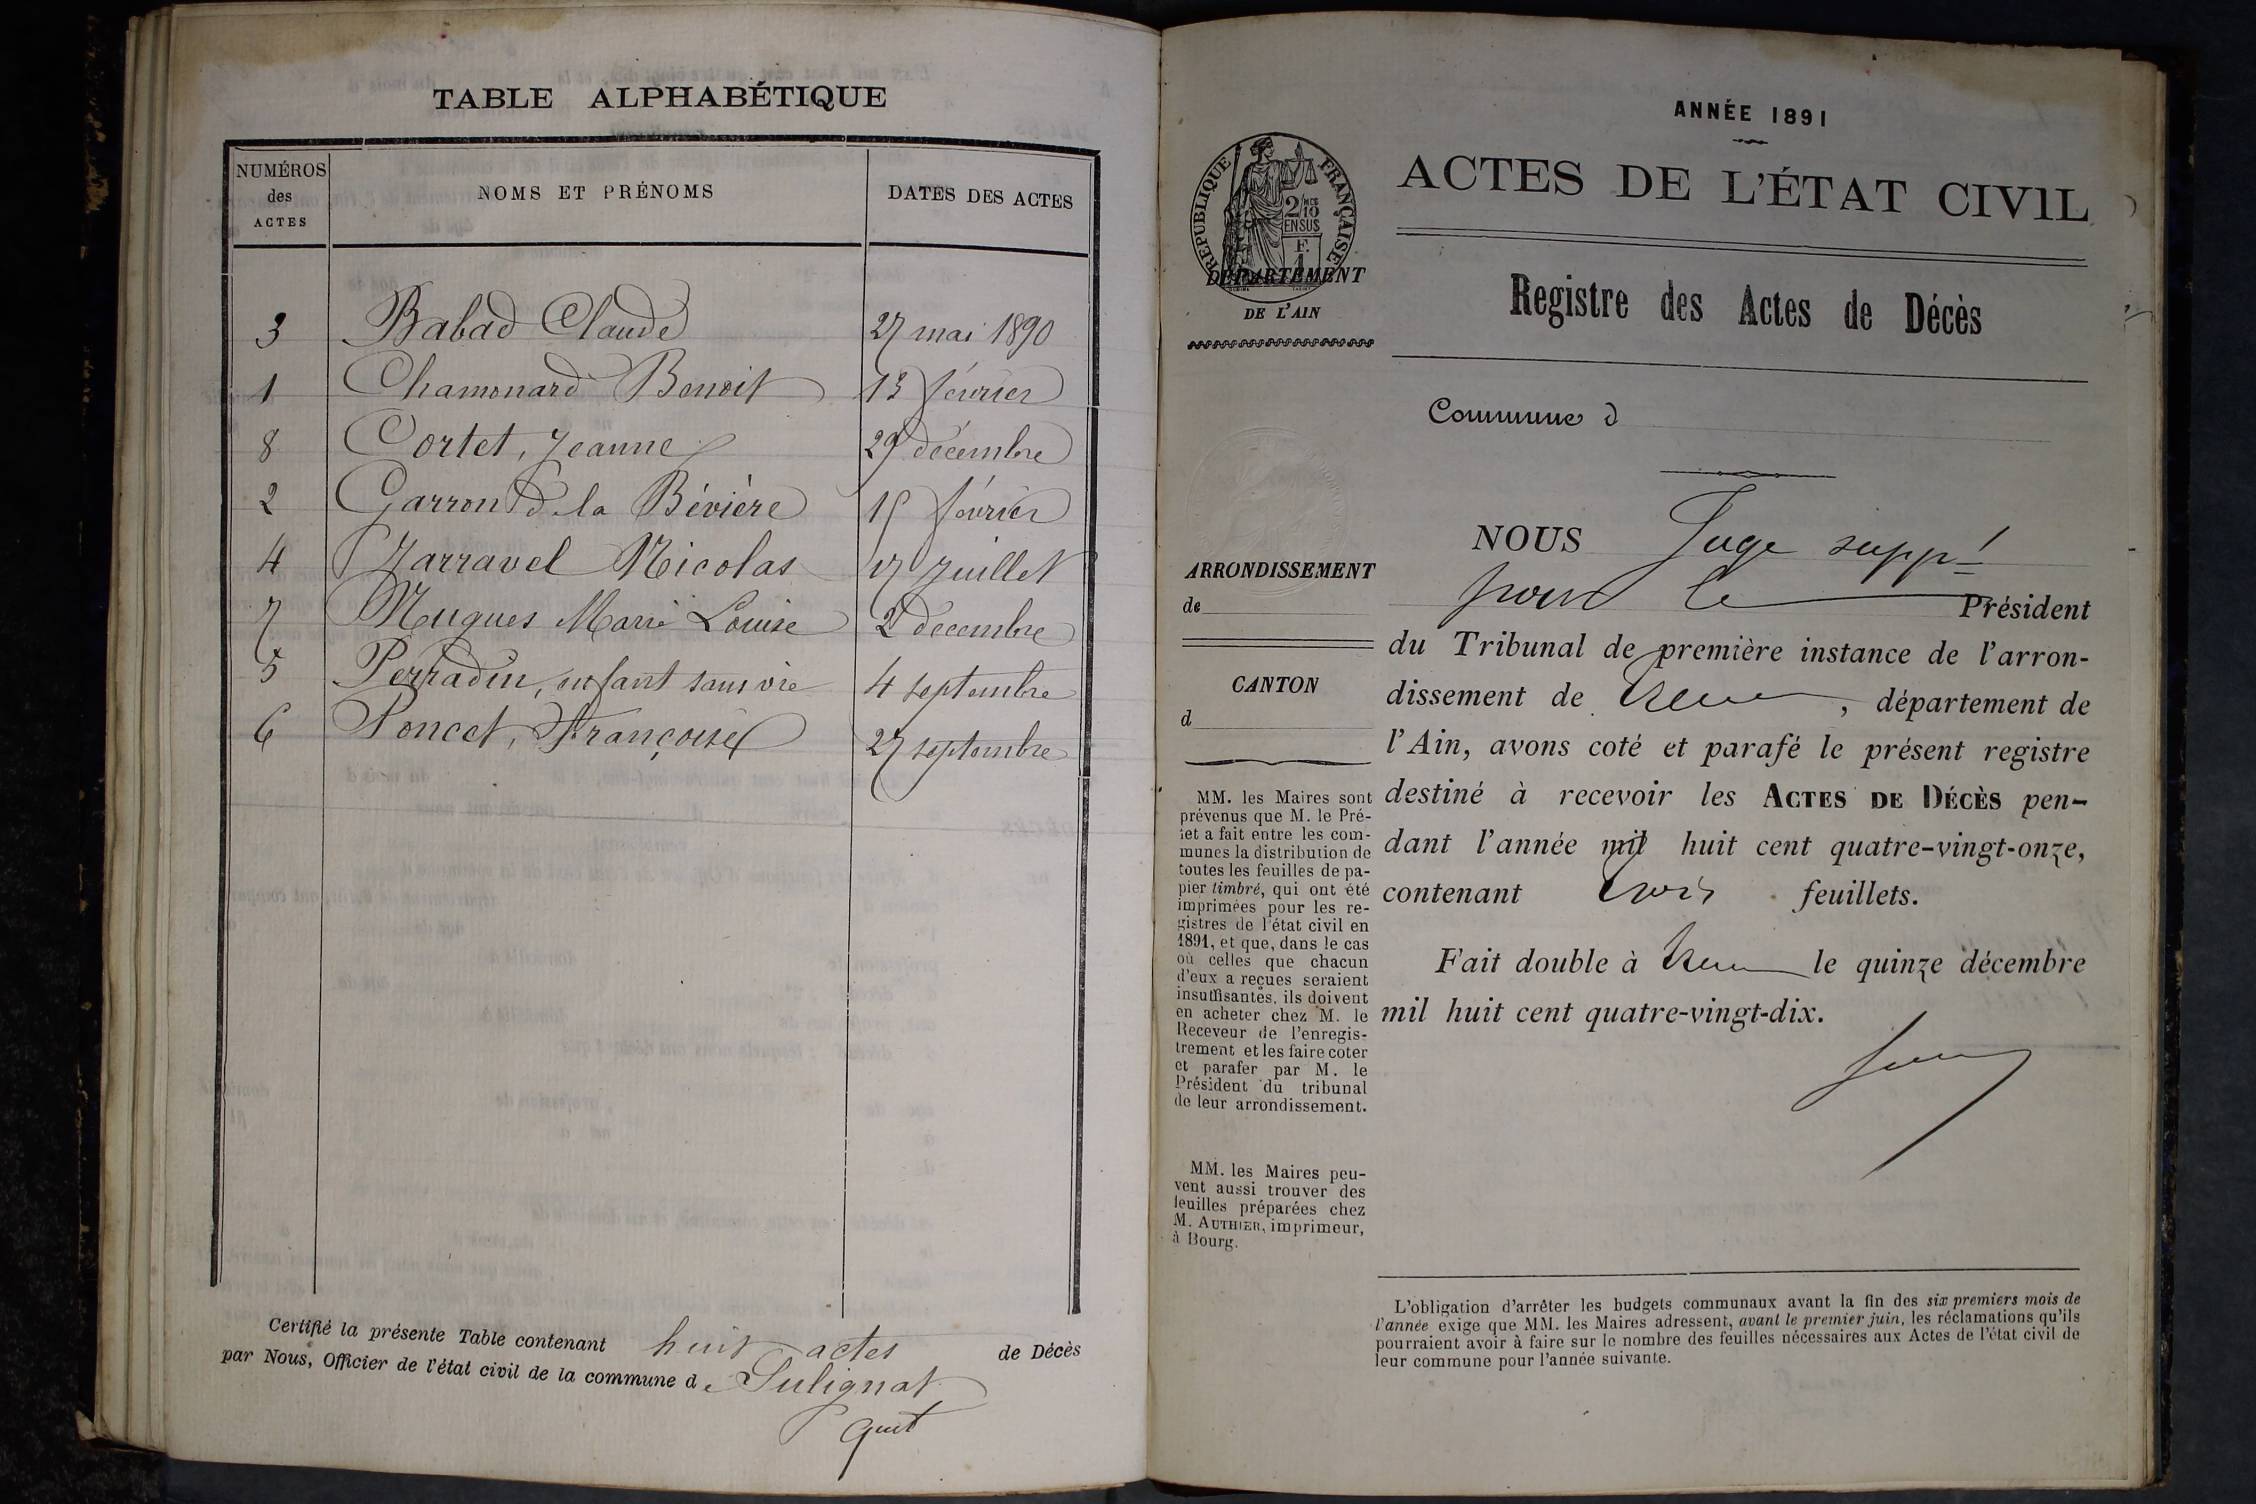 TABLE ALPHABÉTIQUE
NUMÉROS des ACTES | NOMS ET PRÉNOMS | DATES DES ACTES
3 Babad Claude 27 mai 1890
1 Chamonard Benoit 13 février
8 Cortet, Jeanne 29 décembre
2 Garron de la Bévière 15 février
4 Jarravel Nicolas 17 Juillet
7 Mugues Marie Louise 2 décembre
5 Perradin, enfant sans vie 4 septembre
6 Poncet, Françoise 27 septembre
Certifié la présente Table contenant huit actes de Décès
par Nous, Officier de l'état civil de la commune de Sulignat
ANNÉE 1891
ACTES DE L'ÉTAT CIVIL
RÉPUBLIQUE FRANÇAISE
2/10
EN SUS
F.
1
DÉPARTEMENT
DE L'AIN
Registre des Actes de Décès
Commune d
ARRONDISSEMENT
de
CANTON
d
NOUS Juge suppt
pour le Président
du Tribunal de première instance de l'arron-
dissement de Trévoux, département de
l'Ain, avons coté et parafé le présent registre
destiné à recevoir les ACTES DE DÉCÈS pen-
dant l'année mil huit cent quatre-vingt-onze,
contenant trois feuillets.
Fait double à Trévoux le quinze décembre
mil huit cent quatre-vingt-dix.
MM. les Maires sont
prévenus que M. le Pré-
fet a fait entre les com-
munes la distribution de
toutes les feuilles de pa-
pier timbré, qui ont été
imprimées pour les re-
gistres de l'état civil en
1891, et que, dans le cas
où celles que chacun
d'eux a reçues seraient
insuffisantes, ils doivent
en acheter chez M. le
Receveur de l'enregis-
trement et les faire coter
et parafer par M. le
Président du tribunal
de leur arrondissement.
MM. les Maires peu-
vent aussi trouver des
feuilles préparées chez
M. AUTHIER, imprimeur,
à Bourg.
L'obligation d'arrêter les budgets communaux avant la fin des six premiers mois de
l'année exige que MM. les Maires adressent, avant le premier juin, les réclamations qu'ils
pourraient avoir à faire sur le nombre des feuilles nécessaires aux Actes de l'état civil de
leur commune pour l'année suivante.